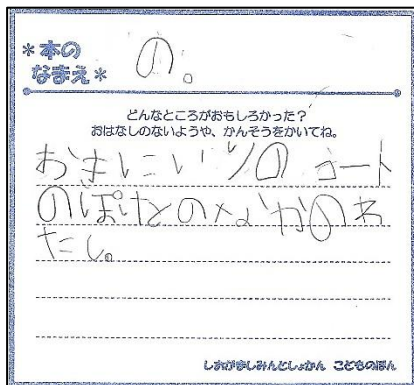 *本の
なまえ*
の。
どんなところがおもしろかった?
おはなしのないようや、かんそうをかいてね。
おきにいりのコート
のぽけとのなかのわ
たし。
しおがましみんとしょかん こどものほん